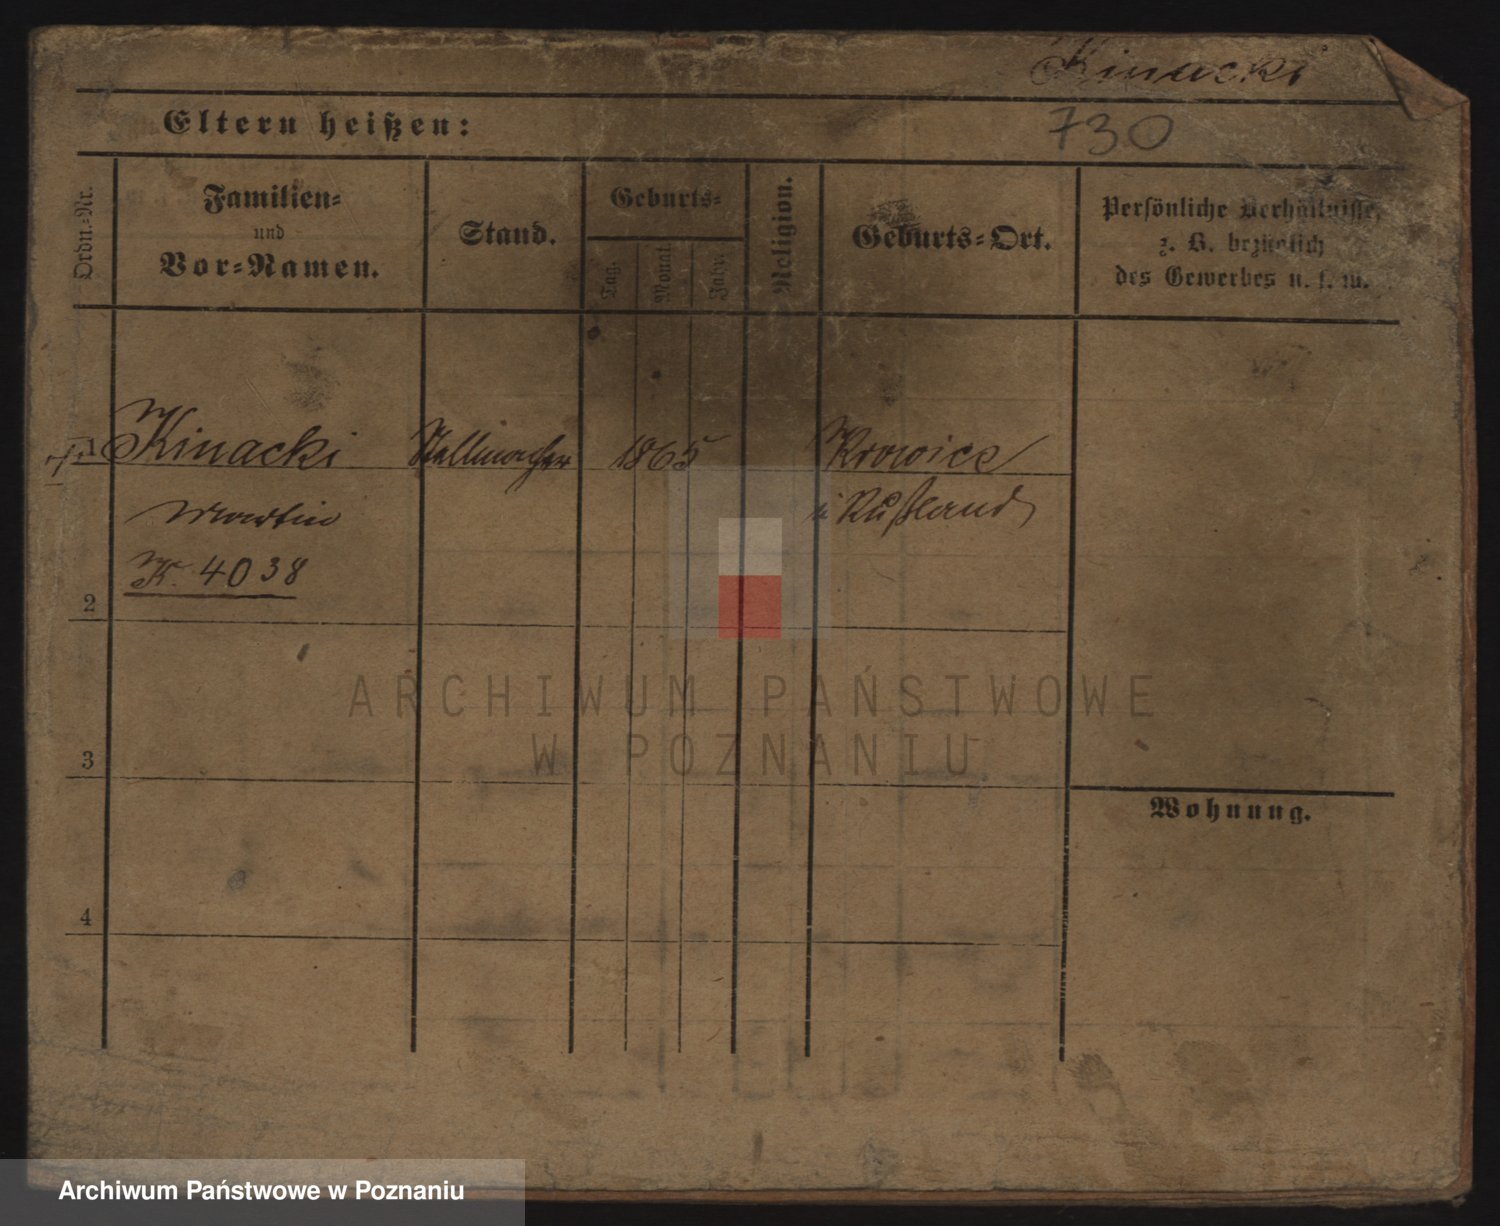 Kinacki
Eltern heißen:
730
Ordn.-Nr.
Familien-
und
Vor-Namen.
Stand.
Geburts-
Tag.
Monat.
Jahr.
Religion.
Geburts-Ort.
Persönliche Verhältnisse,
z. B. bezüglich
des Gewerbes u. s. w.
1 Kinacki Stellmacher 1865 Krowice
Martin i Rußland
K. 4038
2
3
4
Wohnung.
ARCHIWUM PAŃSTWOWE
W POZNANIU
Archiwum Państwowe w Poznaniu